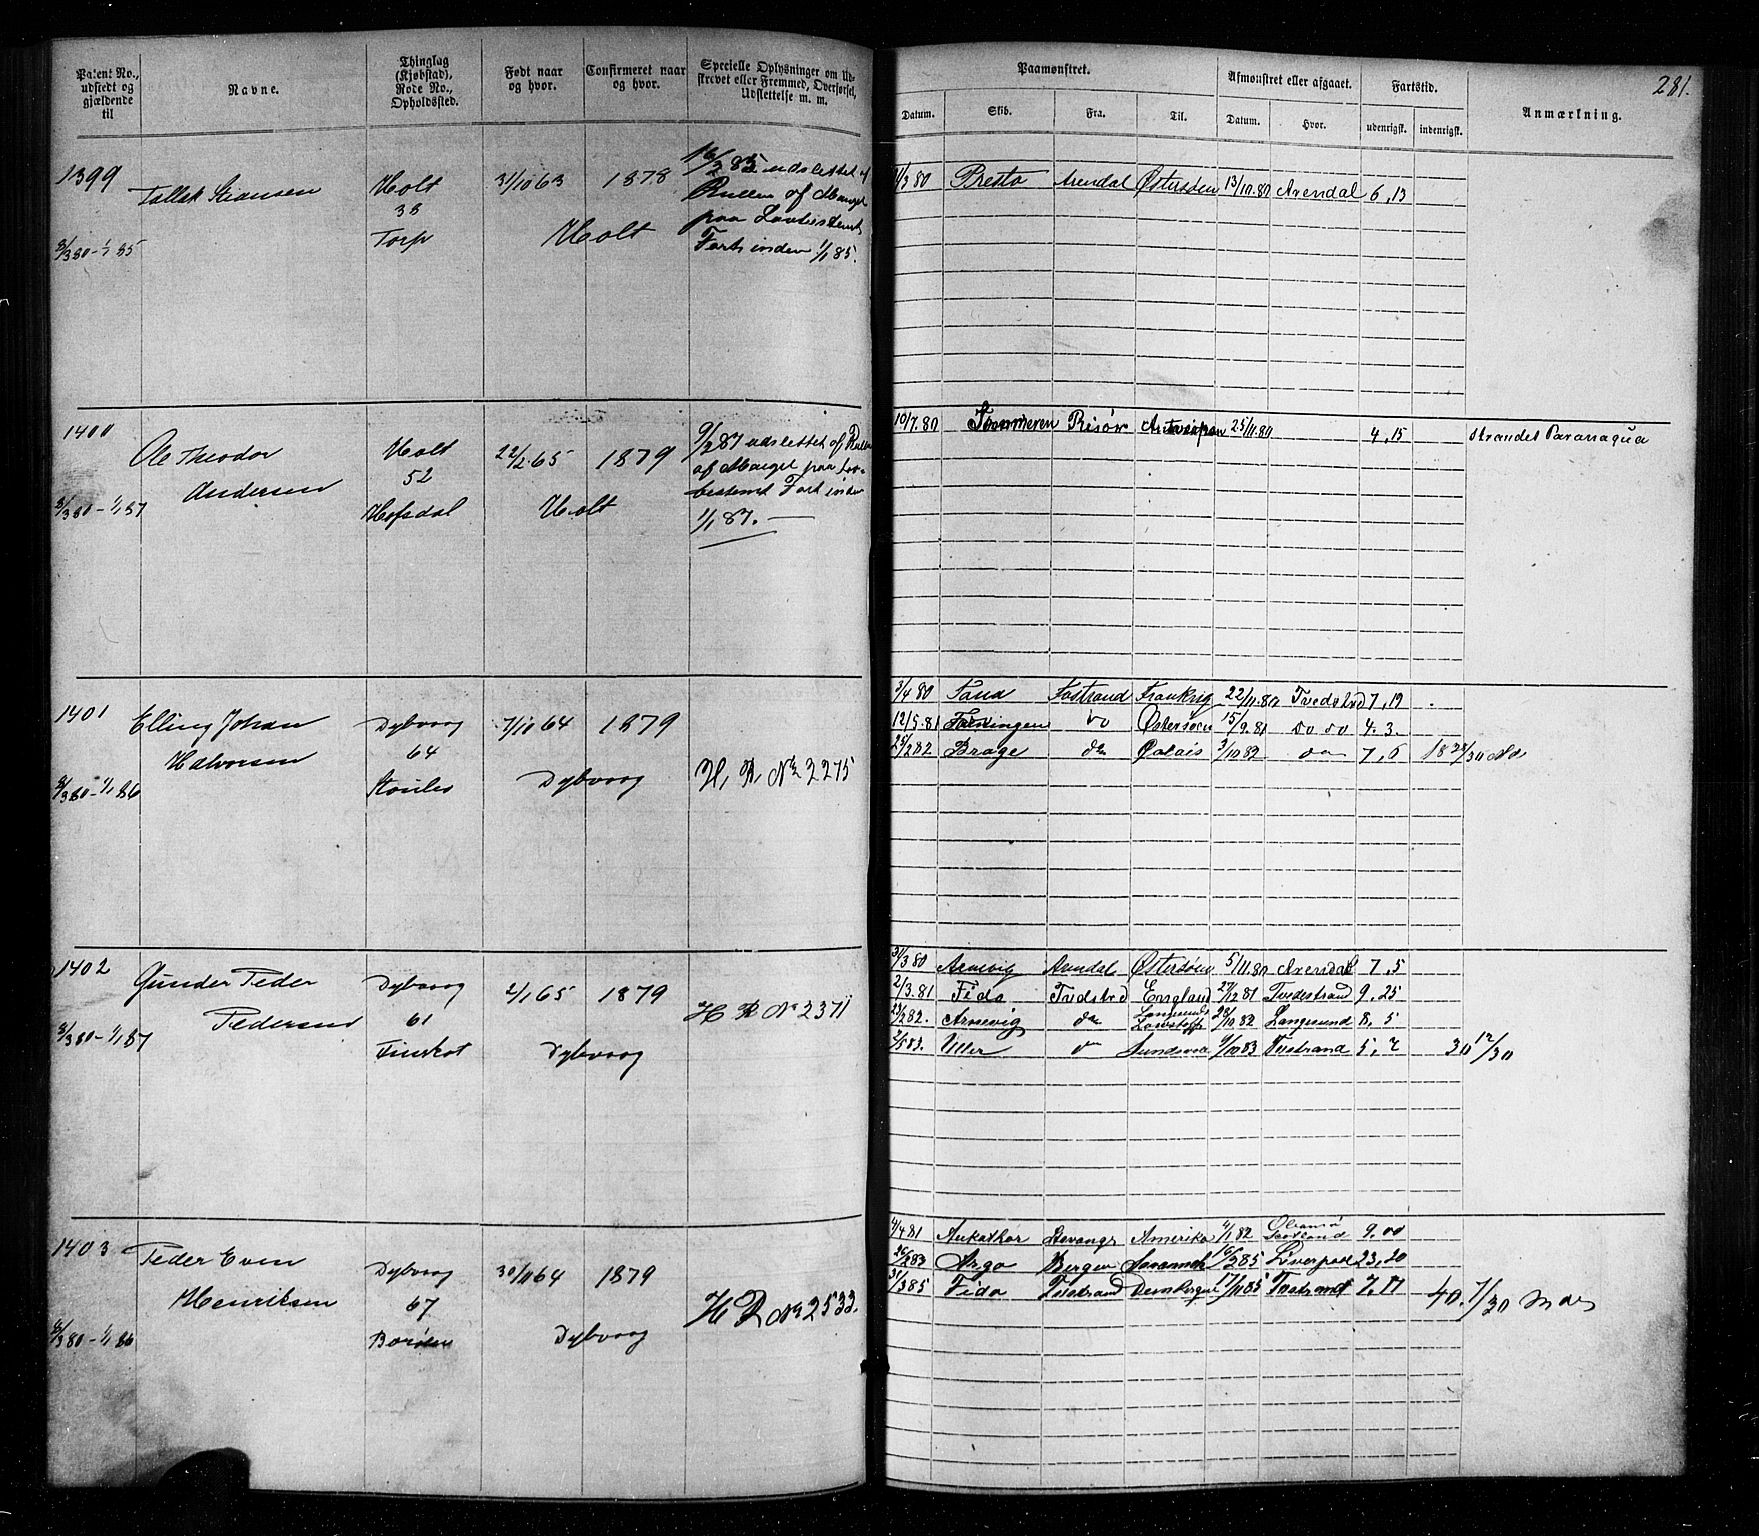 Patent No., udstedt og gjældende til
Navne.
Thinglag (Kjøbstad), Rode No., Opholdssted.
Født naar og hvor.
Confirmeret naar og hvor.
Specielle Oplysninger om Udskrevet eller Fremmed, Overførsel, Udslettelse m. m.
Paamønstret.
Afmønstret eller afgaaet.
Fartstid.
281.
Datum.
Skib.
Fra.
Til.
Datum.
Hvor.
udenrigsk.
indenrigsk.
Anmærkning.
1399
Tallak
Holt
38
Torp
31/10 63
1878
Holt
udslettet af
Rullen af Mangel
paa
Fart inden 1/1 85.
8/3 80 - 1/1 85
1/3 80 Presto Arendal Østersøen 13/10.80 Arendal 6,13
1400
Ole Theodor
Andersen
Holt
52
Hofsdal
22/2.65
1879
Holt
9/2 87 udslettet af Rullen
af Mangel paa lov-
bestemt Fart inden
1/1 87. —
8/3 80 - 1/1 87
10/7.80 Risør Antverpen 25/11.80 4,15 strandet Paranagua
1401
Elling Johan
Halvorsen
Dybvaag
64
7/10 64
1879
Dybvaag
H. R. No 2275
8/3 80 - 1/1 86
3/4 80 Frankrig 22/11.80 Tvedstrd 7,19
12/5.81 do Østersøen 15/9.81 do do 4.3.
25/2 82 Brage do Calais 3/10 82 do 7,6 18 28/30 Mdr
1402
Gunder Peder
Pedersen
Dybvaag
61
2/1 65
1879
Dybvaag
H R No 2371
8/3 80 - 1/1 87
31/3 80 Arnevig Arendal Østersøen 5/11.80 Arendal 7,5
2/3.81 Fido Tvedstrd England 27/12 81 Tvedestrand 9,25
23/2 82. Arnevig do Langesund Lowestoft 28/10 82 Langesund 8,5
Uller do 9/10 83 5,7 30 12/30
1403
Peder Even
Henriksen
Dybvaag
67
30/11 64
1879
Dybvaag
H R No 2533.
8/3 80 - 1/1 86
4/4 81 Amerika 4/1 82 9,00
26/2 83 Argo Bergen 6/3 85 Liverpool 23,20
31/3 85 Fido 17/11 85 7,11 40. 7/30 Mdr